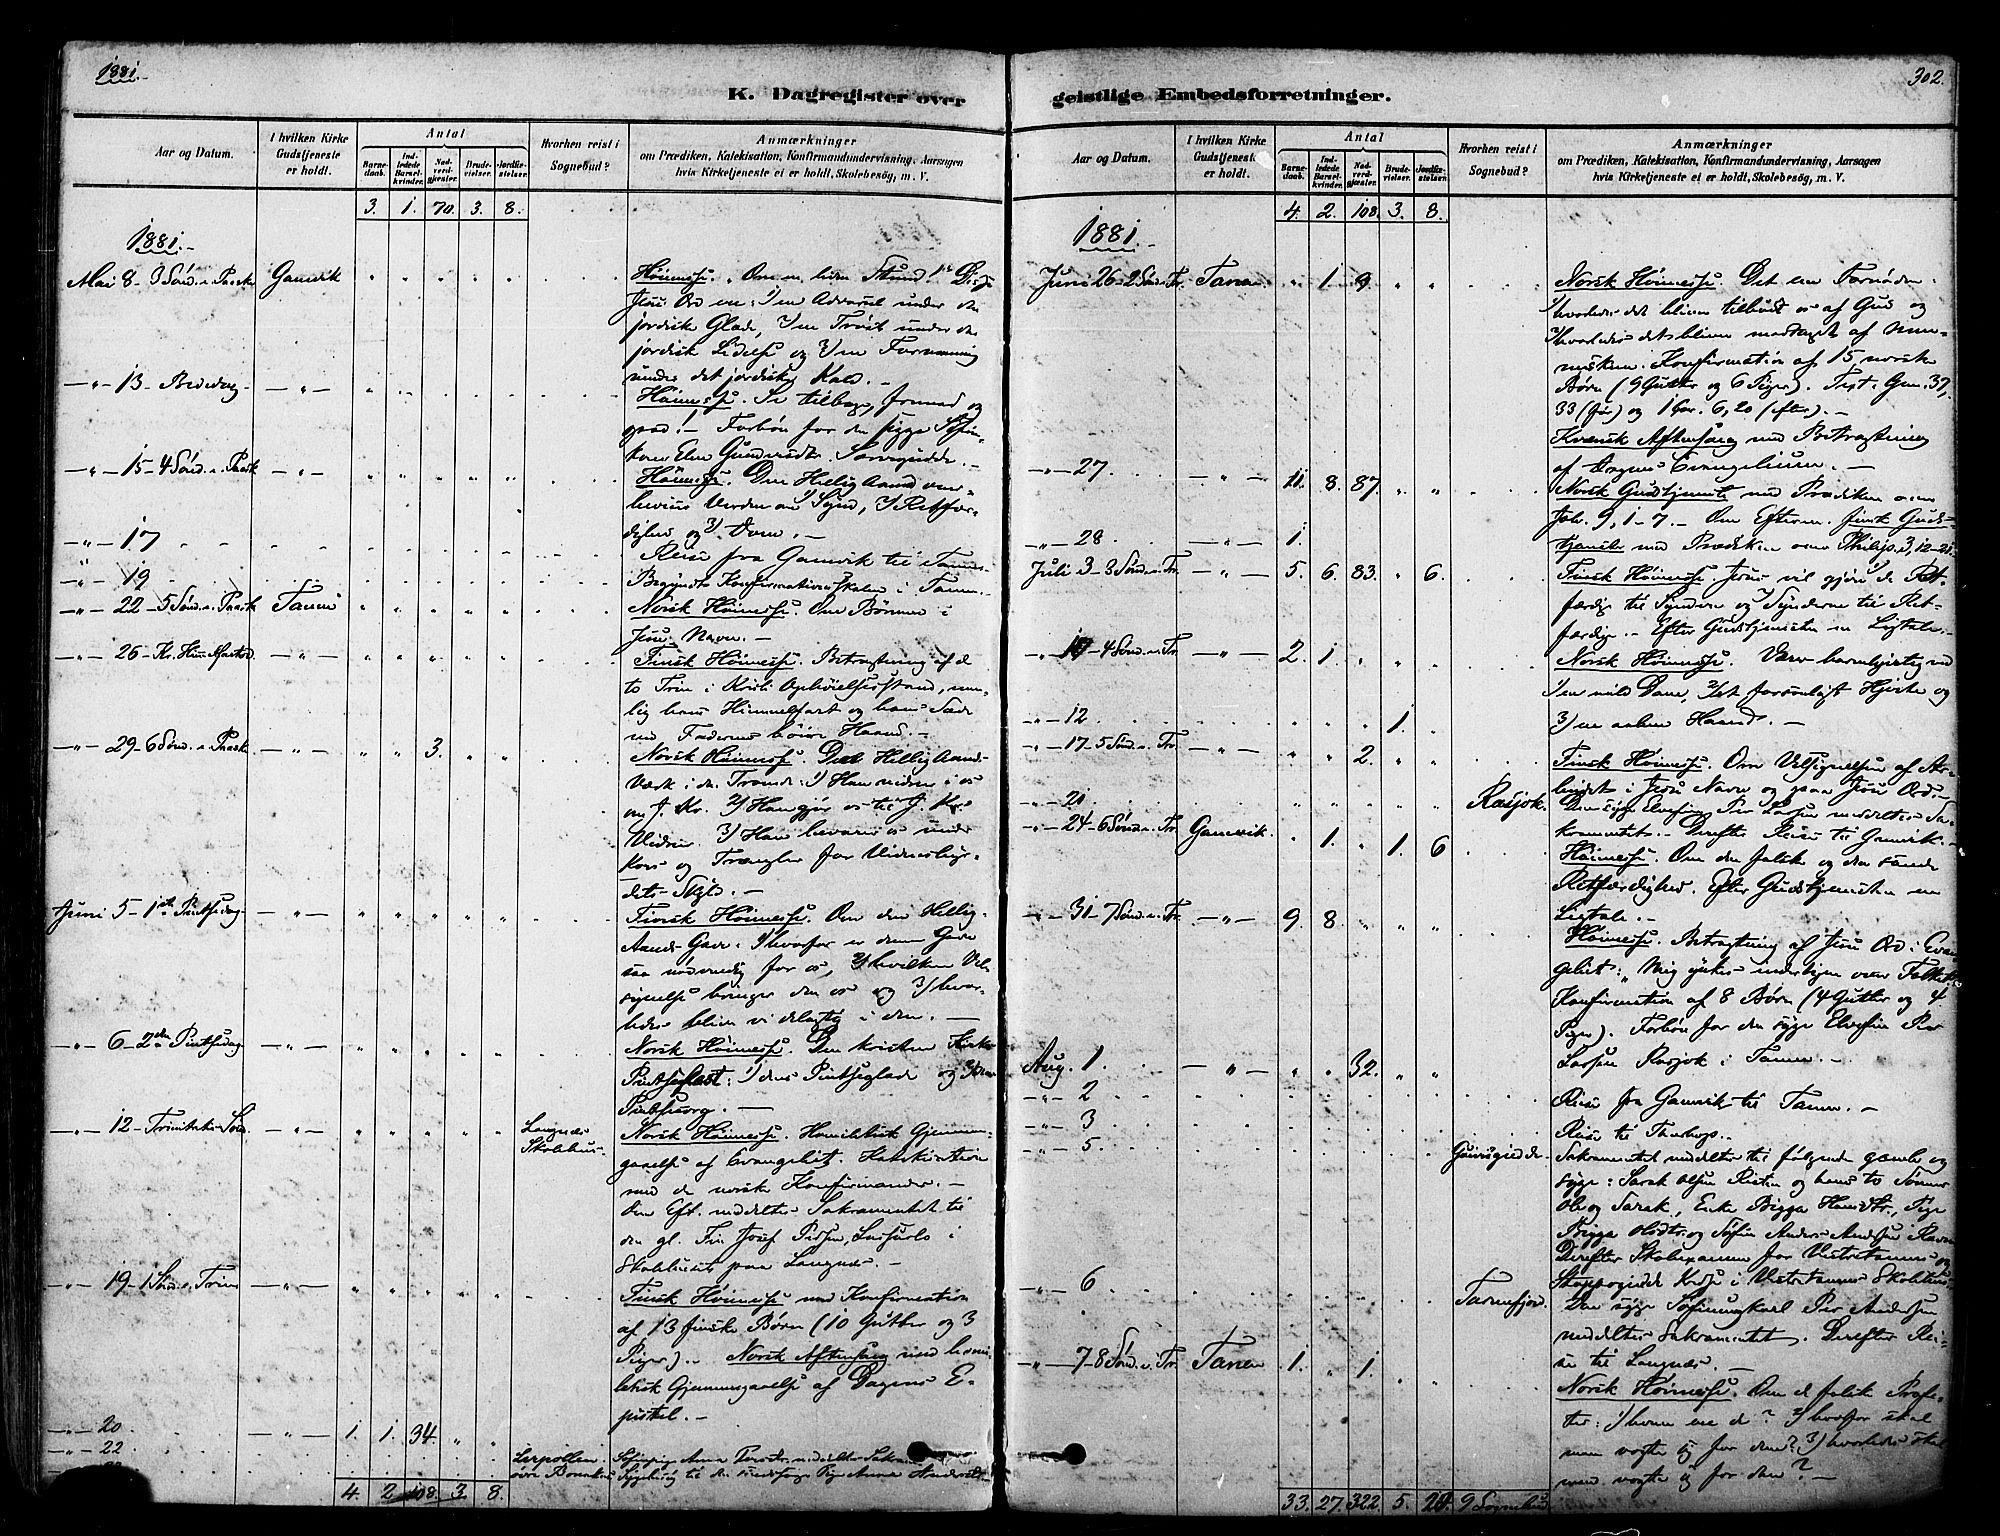 1881.
K. Dagregister over
Aar og Datum.
I hvilken Kirke Gudstjeneste er holdt.
Antal
Barne-daab.
Ind-ledede Barsel-kvinder.
Nad-verd-gjæster.
Brude-vielser.
Jordfæ-stelser.
Hvorhen reist i Sognebud?
Anmærkninger
om Prædiken, Katekisation, Konfirmandundervisning, Aarsagen
hvis Kirketjeneste ei er holdt, Skolebesøg, m. V.
3. 1. 70. 3. 8.
1881.
Mai 8 - 3 Sønd. e. Paaske Gamvik
Høimesse. "Om en liden Stund". Disse
Jesu Ord en: 1/ en Advarsel under de
jordiske Glæde, 2/ en Trøst under de
jordisk Lidelse og 3/ en Formaning
under det jordiske Kald. -
13 - Bededag
Høimesse. Se tilbage, fremad og
opad! - Forbøn for den syge
kone Elen Gundersdtr.
15 - 4 Sønd. e. Paask
Høimesse. Den Hellig Aand over-
beviser Verden om 1/ Synd, 2/ Retfær-
dighed og 3/ Dom. -
17
Reise fra Gamvik til Tanen.
19
Begyndt Konfirmationsskolen i Tanen.
22 - 5 Sønd. e. Paask Tanen
Norsk Høimesse. Om Bønnen i
Jesu Navn. -
26 - Kr. Himmelfartsd.
Finsk Høimesse. Betragtning af de
to Trin i Kristi Ophøielsesstand, nem-
lig hans Himmelfart og hans Sæde
ved Faderens høire Haand. -
29 - 6 Sønd. e. Paask 3.
Norsk Høimesse. Den Hellig Aands
Værk i de Troende: 1/ Han vidner i os
om J. Kr. 2/ Han gjør os til J. Kr.
Vidner. 3/ Han bevarer os under
Kors og Trængsler for Vidnesbyr-
dets Skyld. -
Juni 5 - 1ste Pintsedag
Finsk Høimesse. Om den Hellig
Aands Gave: 1/ hvorfor er denne Gave
saa nødvendig for os, 2/ hvilken Vel-
signelse bringer den os og 3/ hvor-
ledes bliver vi delagtig i den. -
6 - 2den Pintsedag
Norsk Høimesse. Den kristne Kirkes
Pintsefest: 1/ dens Pintseglæde og 2/ dens
Pintsesorg. -
12 - Trinitatis Sønd. Langnæs Skolehus
Norsk Høimesse. Homiletisk Gjennem-
gaaelse af Evangeliet. Katekisation
med de norske Konfirmander. -
Om Eft. meddeltes Sakramentet til
den gl. Fin Josef Persen, i
Skolehuset paa Langnæs. -
19 - 1 Sønd. e. Trin
Finsk Høimesse med Konfirmation
af 13 finske Børn (10 Gutter og 3
Piger). - Norsk Aftensang med homi-
letisk Gjennemgaaelse af Dagens E-
pistel. -
20 1. 1. 34.
22 Leerpollen
4. 2. 108. 3. 8.
302.
geistlige Embedsforretninger.
Aar og Datum.
I hvilken Kirke Gudstjeneste er holdt.
Antal
Barne-daab.
Ind-ledede Barsel-kvinder.
Nad-verd-gjæster.
Brude-vielser.
Jordfæ-stelser.
Hvorhen reist i Sognebud?
Anmærkninger
om Prædiken, Katekisation, Konfirmandundervisning, Aarsagen
hvis Kirketjeneste ei er holdt, Skolebesøg, m. V.
4. 2. 108. 3. 8.
1881.
Juni 26 - 2 Sønd. e. Tr. Tanen 1 9
Norsk Høimesse. Det ene Fornødne:
1/ hvorledes det bliver tilbudt os af Gud og
2/ hvorledes det bliver modtaget af Men-
nesken. Konfirmation af 15 norske
Børn (9 Gutter og 6 Piger). Text: Gen. 37,
33 (før) og 1 Cor. 6, 20 (efter). -
Kvænsk Aftensang med Betragtning
af Dagens Evangelium. -
27 11. 8. 87.
Norsk Gudstjeneste med Prædiken over
Joh. 9, 1-7. - Om Efterm. finsk Guds-
tjeneste med Prædiken over Philip. 3, 12-21.
28 1.
Juli 3 - 3 Sønd. e. Tr. 5. 6. 83. 6.
Finsk Høimesse. Jesus vil gjøre 1/ de Ret-
færdige til Syndere og 2/ Synderne til Ret-
færdige. - Efter Gudstjenesten en Ligtale. -
10 - 4 Sønd. e. Tr. 2. 1.
Norsk Høimesse. Vær barmhjertig ved
1/ en mild Dom, 2/ et forsonligt Hjerte og
3/ en aaben Haand. -
12 1.
17 - 5 Sønd. e. Tr. 2.
Finsk Høimesse. Om Velsignelsen af Ar-
beidet i Jesu Navn og paa Jesu Ord. -
21 Rasjok.
Den syge Elvefin Per Larsen meddeltes Sa-
kramentet. - Derefter Reise til Gamvik. -
24 - 6 Sønd. e. Tr. Gamvik. 1. 1. 6
Høimesse. Om den falske og den sande
Retfærdighed. Efter Gudstjenesten en
Ligtale. -
31 - 7 Sønd. e. Tr. 9 8
Høimesse. Betragtning af Jesu Ord i Evan-
geliet: "Mig ynkes inderligen over Folket".
Konfirmation af 8 Børn (4 Gutter og 4
Piger). Forbøn for den syge Elvefin Per
Larsen Rasjok i Tanen. -
Aug. 1 32.
2
Reise fra Gamvik til Tanen. -
3
Reise til
5
Sakramentet meddeltes til følgende gamle og
syge: Sarak Olsen og hans to Sønner
Ole og Sarak, Enke Bigga Hansdtr., Pige
Bigga Olsdtr. og Søfin Anders Andersen
Derefter Skoleexamen for Vestertanens og
Kreds i Vestertanens Skolehus.
6 Tanenfjord.
Den syge Per Andersen
meddeltes Sakramentet. Derefter Rei-
se til Langnæs. -
7 - 8 Sønd. e. Tr. Tanen 1. 1
Norsk Høimesse. Om de falske Profe-
ter: 1/ hvem ere de? 2/ hvorfor skal
man vogte sig for dem? 3/ hvorledes skal
man vogte sig for dem? -
33. 27. 322. 5. 20. 9 Sognebud